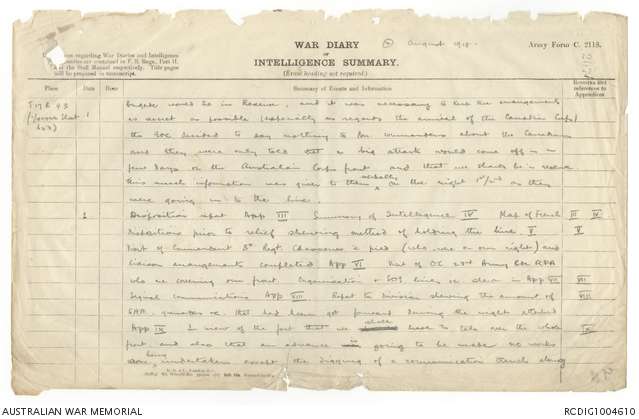 WAR DIARY
August 1918.
Army Form C. 2118.
INTELLIGENCE SUMMARY.
(Erase heading not required.)
regarding War Diaries and Intelligence
are contained in F. S. Regs., Part II.
the Staff Manual respectively. Title pages
will be prepared in manuscript.
Place
Date
Hour
Summary of Events and Information
Remarks and
references to
Appendices
would be in Reserve, and it was necessary to keep the arrangements
as secret as possible especially as regards the arrival of the Canadian Corps)
the GOC decided to say nothing to Bn. Commanders about the Canadians
and they were only told that a big attack would come off in a
few days on the Australian Corps front and that we should be in reserve
this much information was given to them verbally on the night 1st/2nd as they
were going in to the line.
1
Disposition report App III Summary of Intelligence IV Map of French III IV
dispositions prior to relief shewing method of holding the line. V V
Visit of Commandant 5th Regt. Chasseurs a pied (who were on our right) and
liaison arrangements completed App VI Visit of OC 23rd Army Bde RFA
who are covering our front Organisation & SOS lines as shewn in App VII VII
Signal Communications App VIII Report to Division shewing the amount of VIII
SAA grenades etc that had been got forward during the night attached
App IX In view of the fact that we shall have to take over the whole IX
front and also that an advance is going to be made no works
being undertaken except the digging of a communication trench along
AUSTRALIAN WAR MEMORIAL
RCDIG1004610